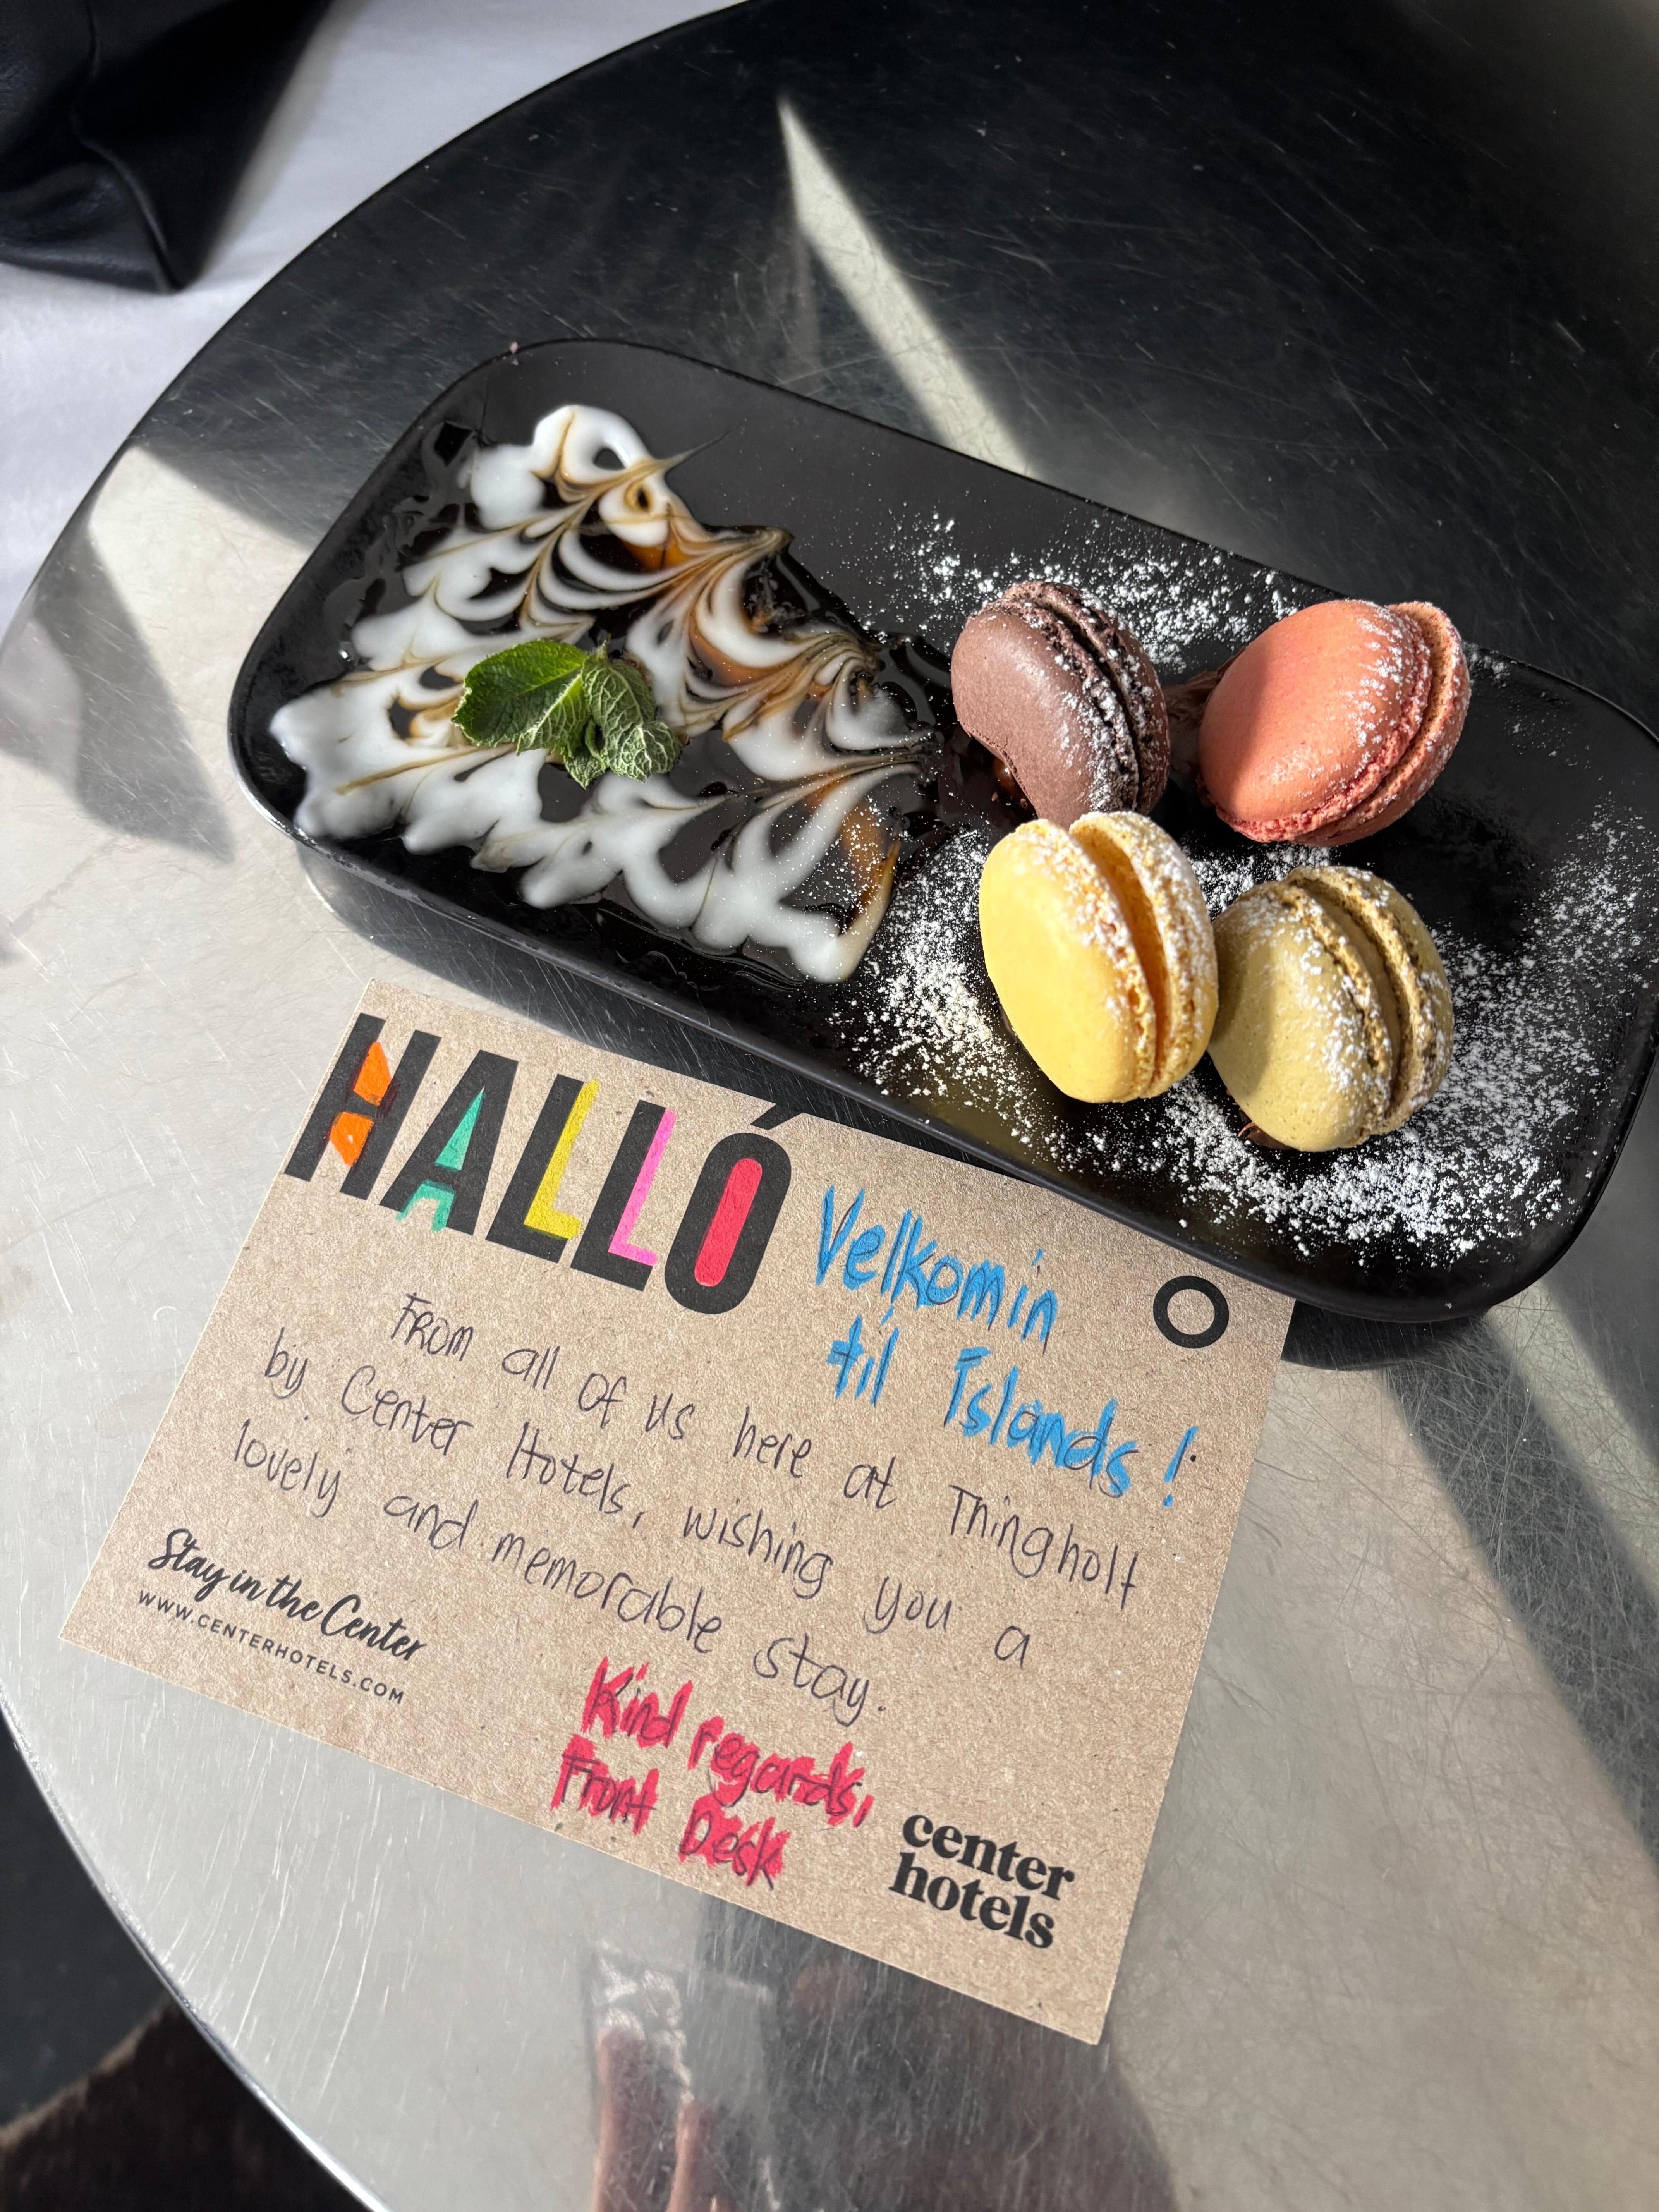 HALLÓ
Velkomin
til Íslands!
From all of us here at Thingholt
by Center Hotels, wishing you a
lovely and memorable stay.
Stay in the Center
WWW.CENTERHOTELS.COM
Kind regards,
Front Desk
center
hotels